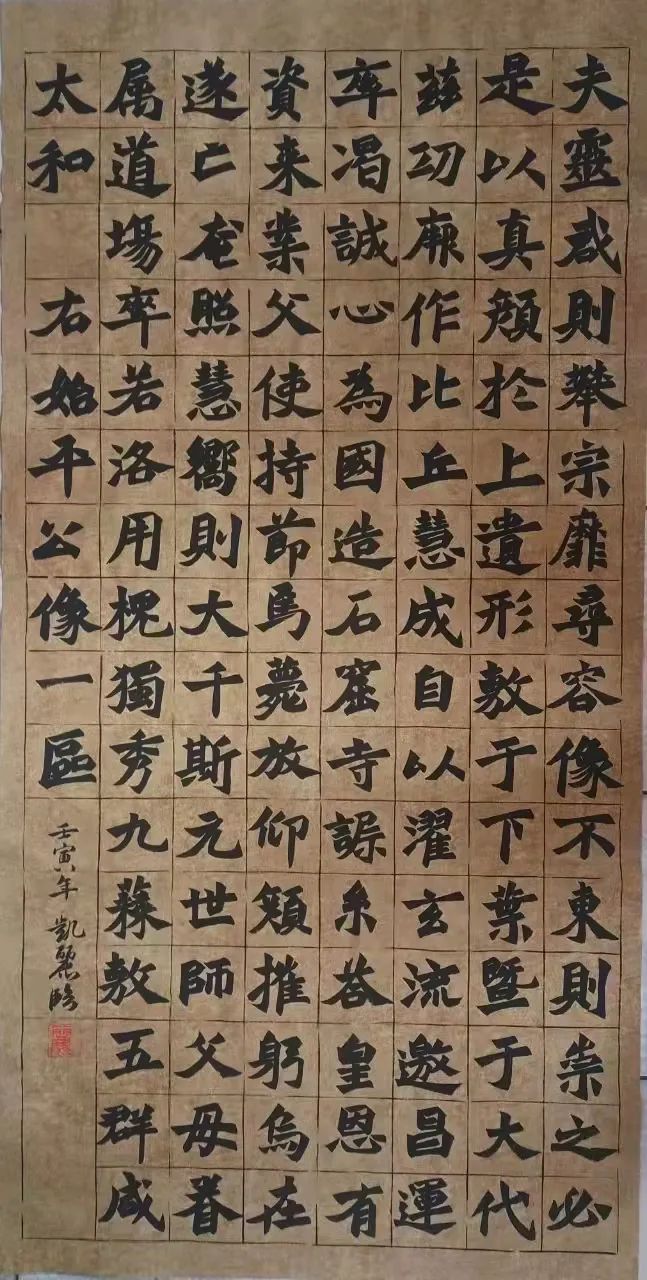 夫靈則攀宗靡尋容像不東則崇之必
是以真顏於上遺形敷于下葉暨于大代
茲功厥作比丘慧成自以濯玄流邀昌運
率渴誠心為國造石窟寺糸荅皇恩有
資来業父使持節馬薨放仰顏摧躬烏在
遂亡照慧嚮則大千斯元世師父母眷
属道場率若洛用槐獨秀九蕀敷五群咸
太和 右始平公像一區
壬寅年 凱麗臨